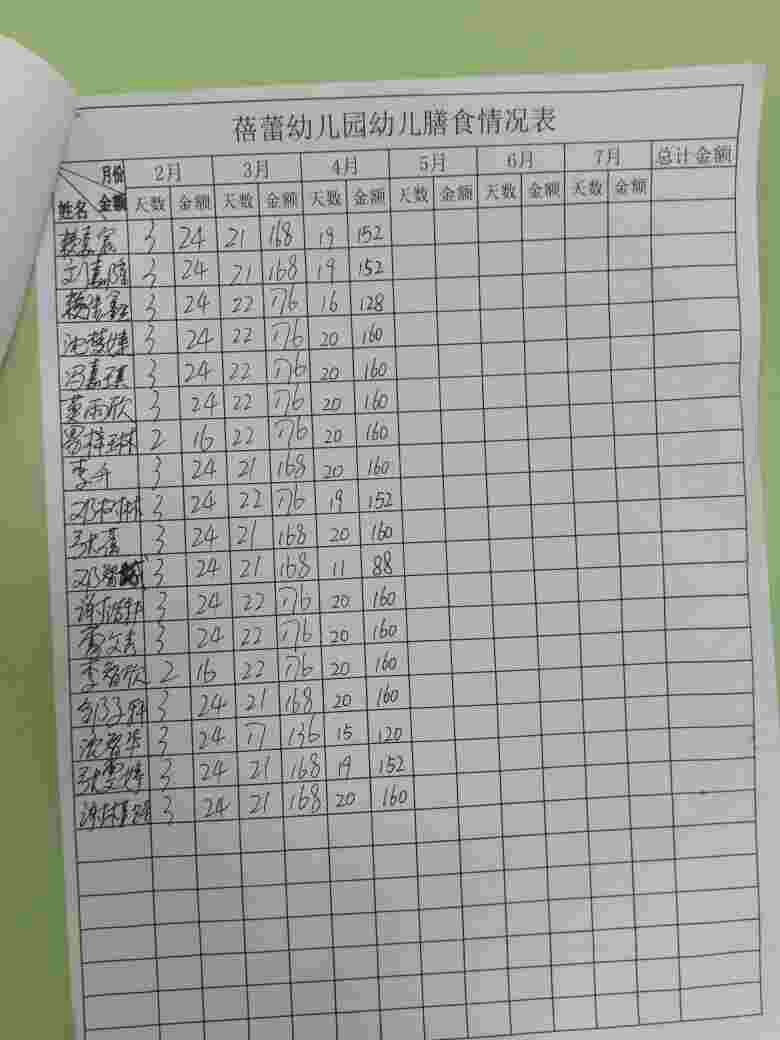 蓓蕾幼儿园幼儿膳食情况表
月份 2月 3月 4月 5月 6月 7月 总计金额
姓名 金额 天数 金额 天数 金额 天数 金额 天数 金额 天数 金额 天数 金额
3 24 21 168 19 152
3 24 21 168 19 152
3 24 22 176 16 128
3 24 22 176 20 160
冯嘉琪 3 24 22 176 20 160
雨欣 3 24 22 176 20 160
罗梓琳 2 16 22 176 20 160
李升 3 24 21 168 20 160
3 24 22 176 19 152
3 24 21 168 20 160
邓智 3 24 21 168 11 88
谢 3 24 22 176 20 160
3 24 22 176 20 160
李智欣 2 16 22 176 20 160
3 24 21 168 20 160
沈智华 3 24 17 136 15 120
张雯婷 3 24 21 168 19 152
谢林 3 24 21 168 20 160